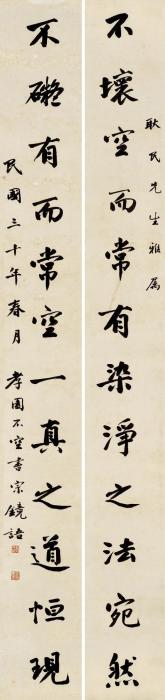 耿民先生雅属
不壞空而常有染淨之法宛然
不礙有而常空一真之道恒現
民國三十年春月
孝園不空書宗鏡語